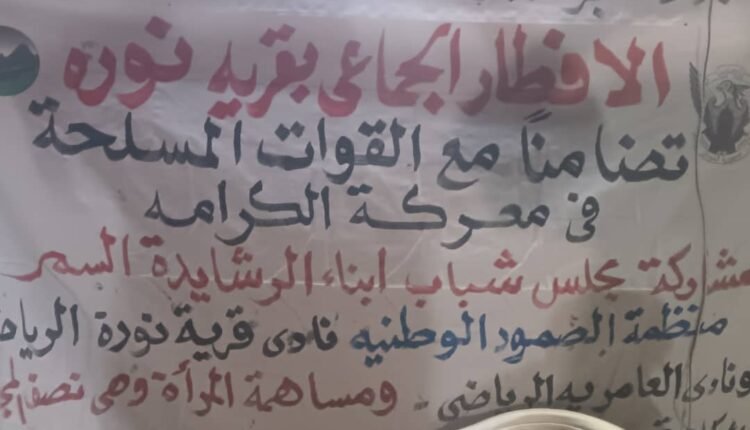 الافطار الجماعي بقريه نوره
تضامناً مع القوات المسلحة
في معركة الكرامه
مشاركة مجلس شباب ابناء الرشايدة السمر
منظمة الصمود الوطنيه نادى قرية نورة الرياض
ونادى العامريه الرياضي - ومساهمة المرأة وهى نصف